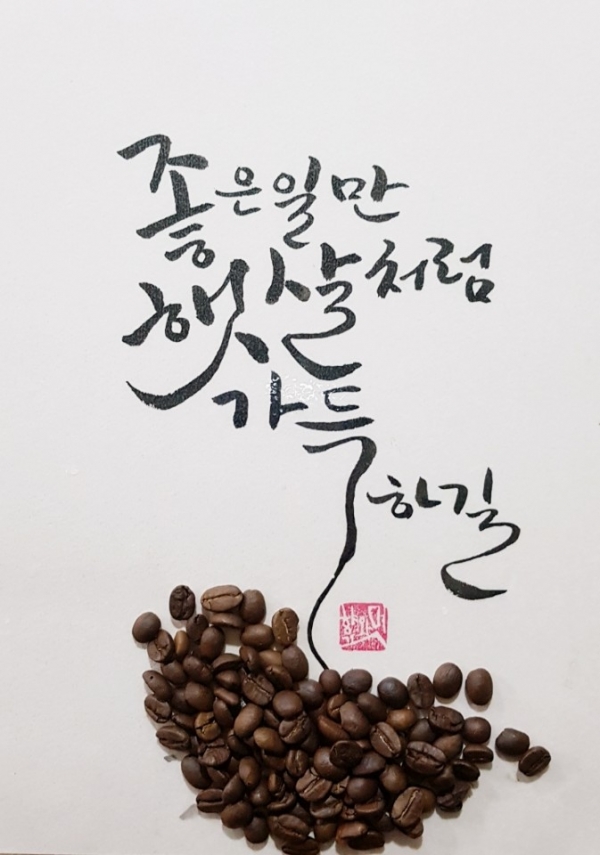 좋은일만
햇살처럼
가득
하길